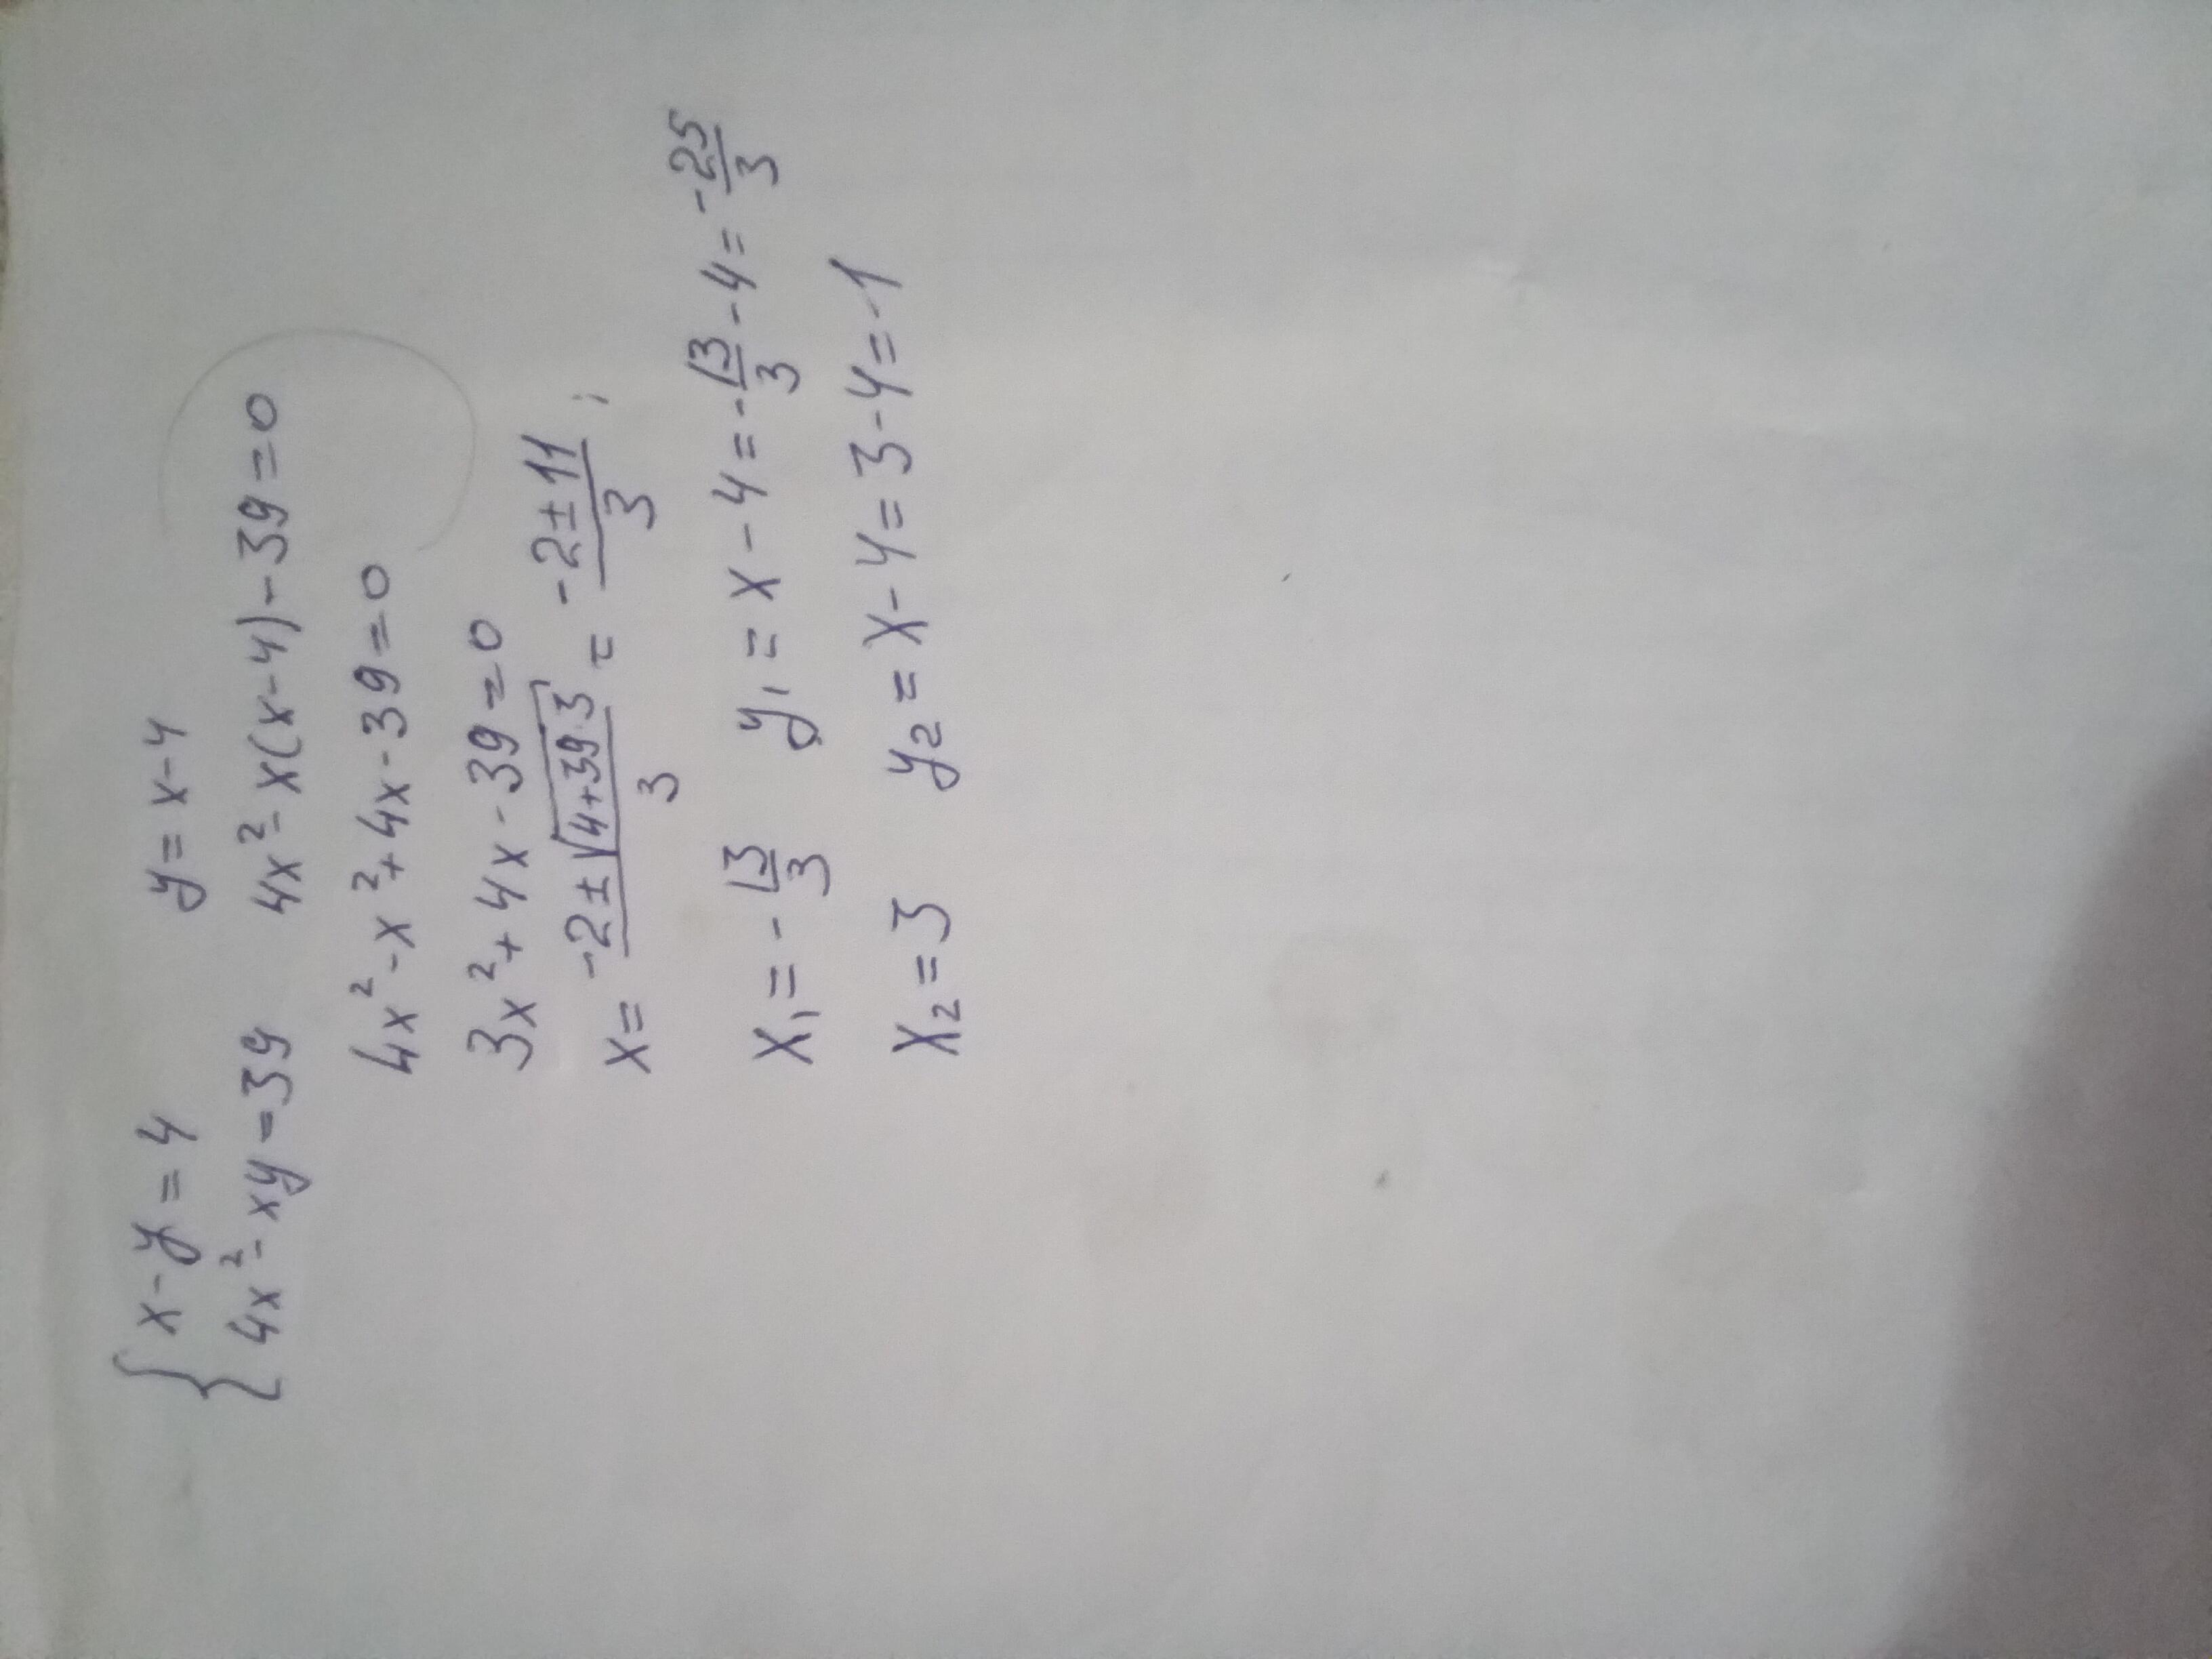 { x - y = 4      y = x - 4
4x² - xy = 39   4x² - x(x - 4) - 39 = 0
4x² - x² + 4x - 39 = 0
3x² + 4x - 39 = 0
x = (-2 ± √(4 + 39·3))/3 = (-2 ± 11)/3 ;
x₁ = -13/3   y₁ = x - 4 = -13/3 - 4 = -25/3
x₂ = 3   y₂ = x - 4 = 3 - 4 = -1